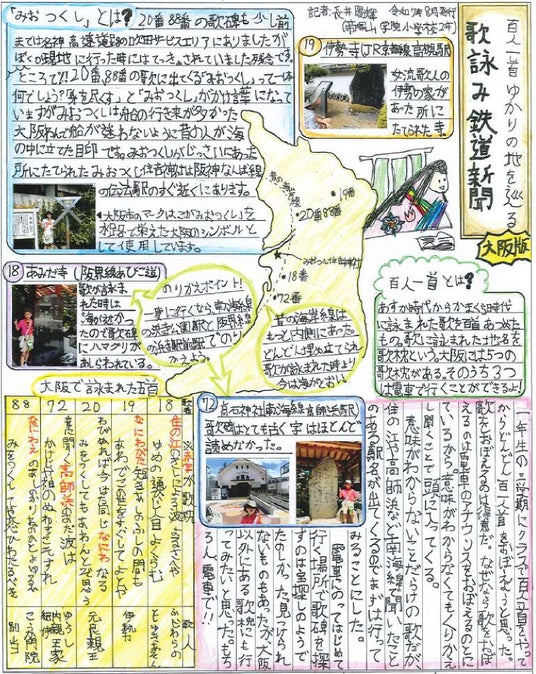 百人一首ゆかりの地を巡る
歌詠み鉄道新聞
大阪版
「みおつくし」とは?
20番88番の歌碑も少し前
までは名神高速道路の吹田サービスエリアにありましたが
ぼくが現地に行った時にはてっきょされていました。残念です。
ところで!20番88番の歌に出てくる「みおつくし」って一体
何でしょう?「身を尽くす」と「みおつくし」がかけ言葉になって
いますが「みおつくし」は船の行き来が多かった
大阪わんで船が迷わないように昔の人が海
の中に立てた目印です。みおつくしがじっさいにあった
所にたてられたみおつくし住吉神社は阪神なんば線
の伝法駅のすぐ近くにあります。
大阪市のマークはこの「みおつくし」を
大阪のシンボルと
して使用しています。
19 伊勢寺(JR京都線高槻駅)
女流歌人の
伊勢の家が
あった所に
たてられた寺。
19番
20番88番
みおつくし住吉神社
18番
72番
18 あみだ寺(阪界線あびこ道)
歌が詠ま
れた時は
海が近かっ
たので歌碑
にハマグリが
あしらわれている。
のりかえポイント!
一度に行くなら南海線
の住吉公園駅と阪界線
の浜寺駅前駅でのり
かえよう。
昔の海岸線は
もっと内側にあった。
どんどん埋め立てられ
歌が詠まれた時より
今は海がとおい。
百人一首とは?
あすか時代からかまくら時代
に詠まれた歌を百首あつめた
もの。歌に詠まれた土地名を
歌枕という。大阪には5つの
歌枕がある。そのうち3つ
は電車で行くことができるよ!
72 高石神社(南海線高師浜駅)
歌碑はとても古く字はほとんど
読めなかった。
一年生の三学期にクラスで百人一首をやって
からどんどん百人一首をおぼえようと思った。
歌をおぼえるのは得意だ。なぜなら歌をおぼ
えるのは電車のアナウンスをおぼえるのとに
ているから。意味がわからなくてもくりかえ
し聞くことで頭に入ってくる。
意味がわからないことだらけの歌だが
住の江や高師浜など南海線で聞いたこと
のある駅名が出てくるのでまずは行って
みることにした。
電車にのってはじめて
行く場所で歌碑を探
すのは宝探しのようで
たのしかった。見つけられ
ないものもあったが大阪
以外にある歌枕にも行
ってみたいと思った。もち
ろん、電車で!!
大阪で詠まれた五首
歌番
18
住の江のきしによる波よるさへや
ゆめの通ひじ人目よくらむ
ふじわらの
としゆきあそん
19
なにわがた短きあしのふしの間も
あわでこの世をすぐしてよとや
伊勢
20
わびぬれば今はた同じなにわなる
みをつくしてもあわんとぞ思う
元良親王
72
音に聞く高師浜のあだ波は
かけじや袖のぬれもこそすれ
ゆうし
内親王家
紀伊
88
なにわえのあしのかりねのひとよゆえ
みをつくしてや恋ひわたるべき
こうか門院
別当
歌人